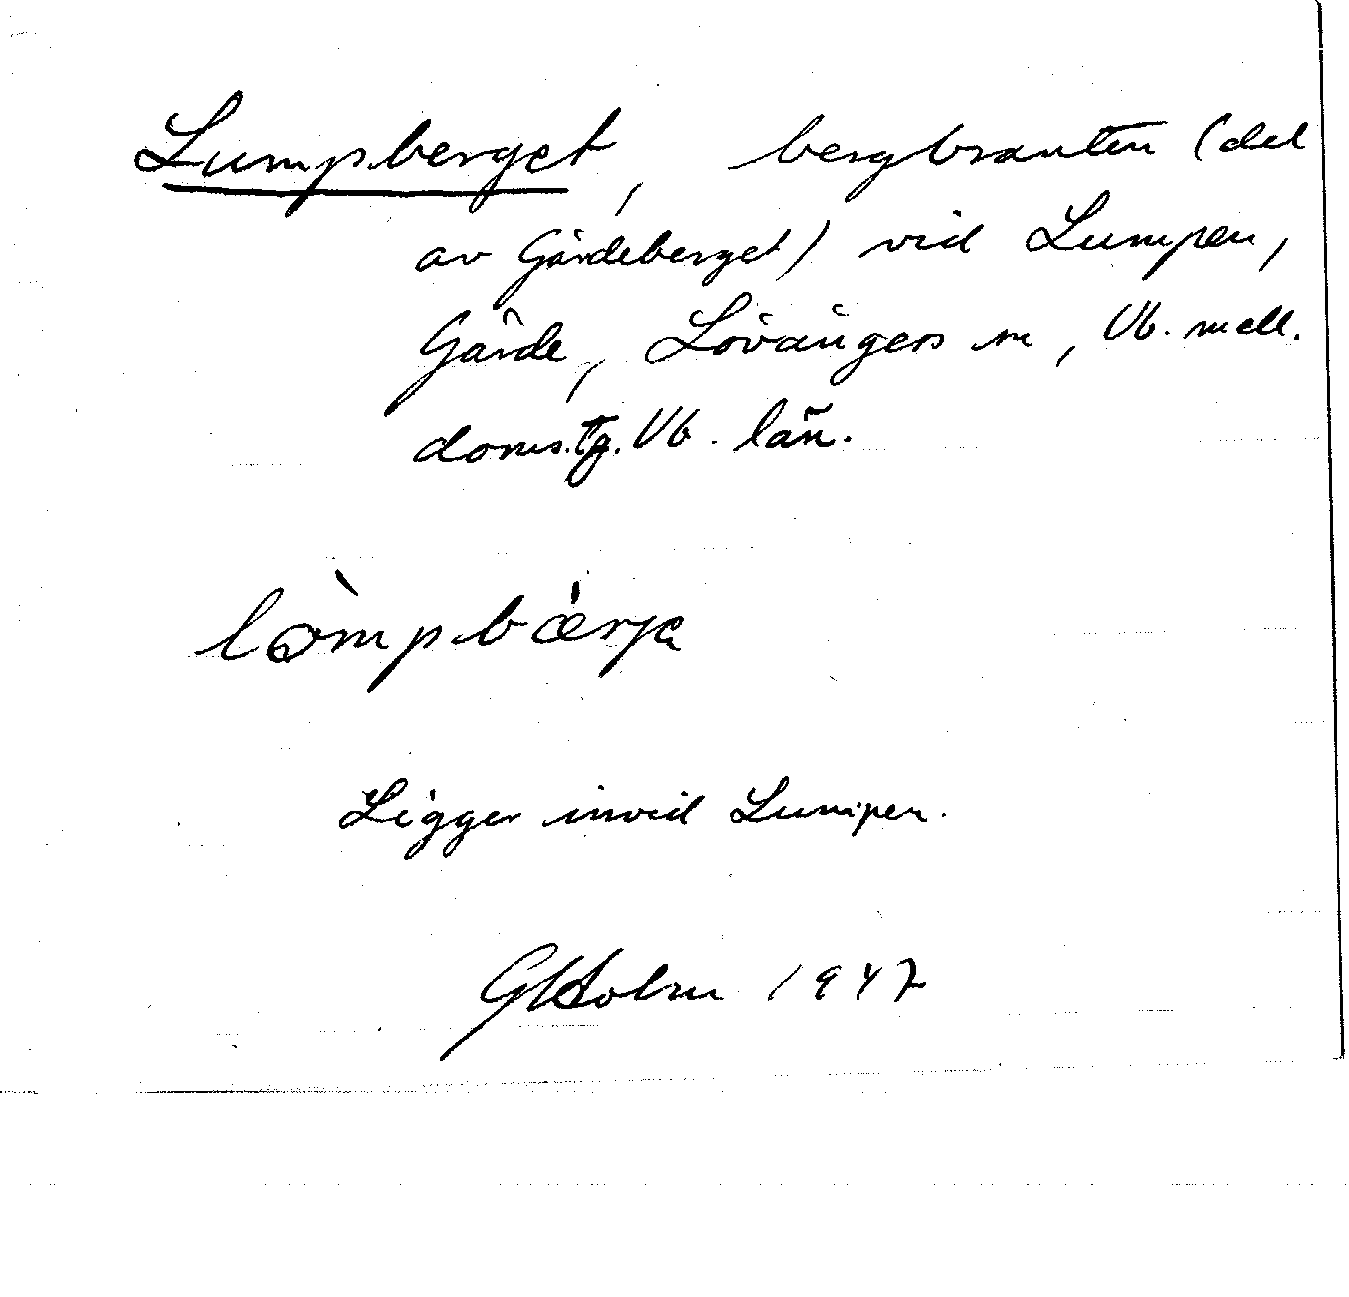 Lumpberget, bergbranten (del
av Gärdeberget) vid Lumpen,
Gärde, Lövångers sn, Vb. mell.
doms.tg. Vb. län.
lòmpbǽrjа
Ligger invid Lumpen.
GHolm 1947